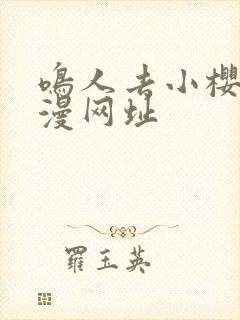 鸣人去小樱
漫网址
羅玉英